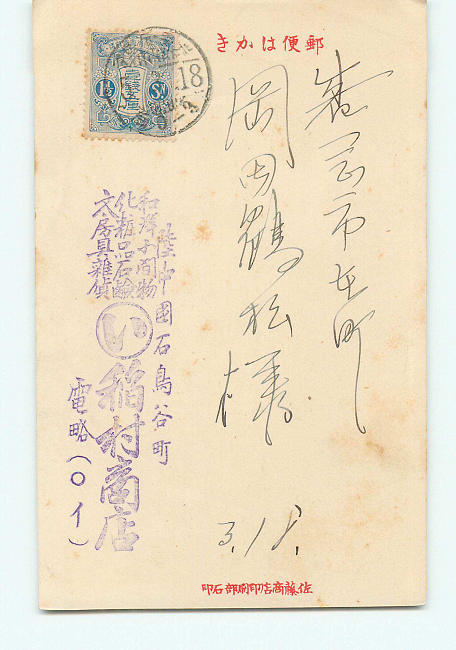 郵便はかき
市
町
岡田鶴松様
3.18.
1½
Sn.
18
陸中國石鳥谷町
和洋小間物
化粧品石鹸
文房具雜貨
い
稲村商店
電略(〇イ)
佐藤商店印刷部石印